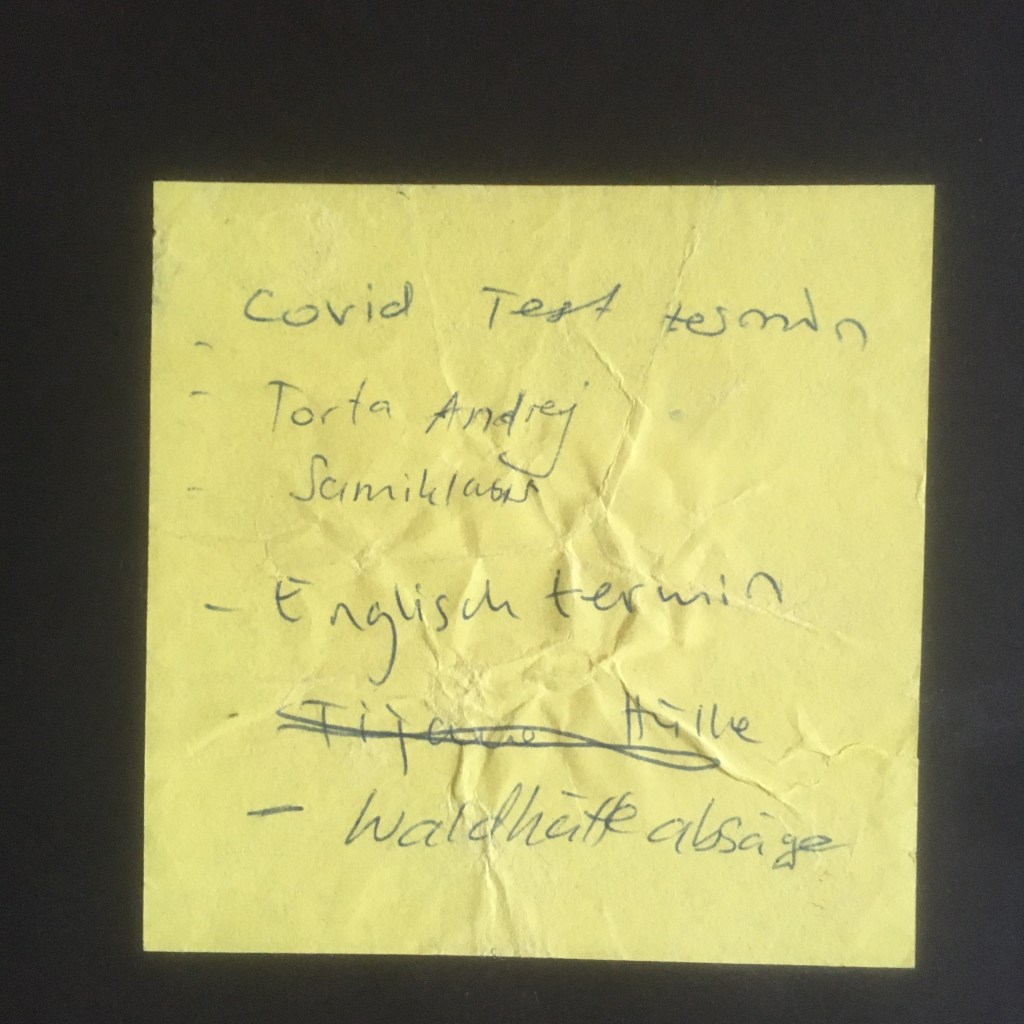 Covid Test termin
- Torta Andrej
- Samiklaus
- Englisch termin
Tijana Hülle
- Waldhütte absäge